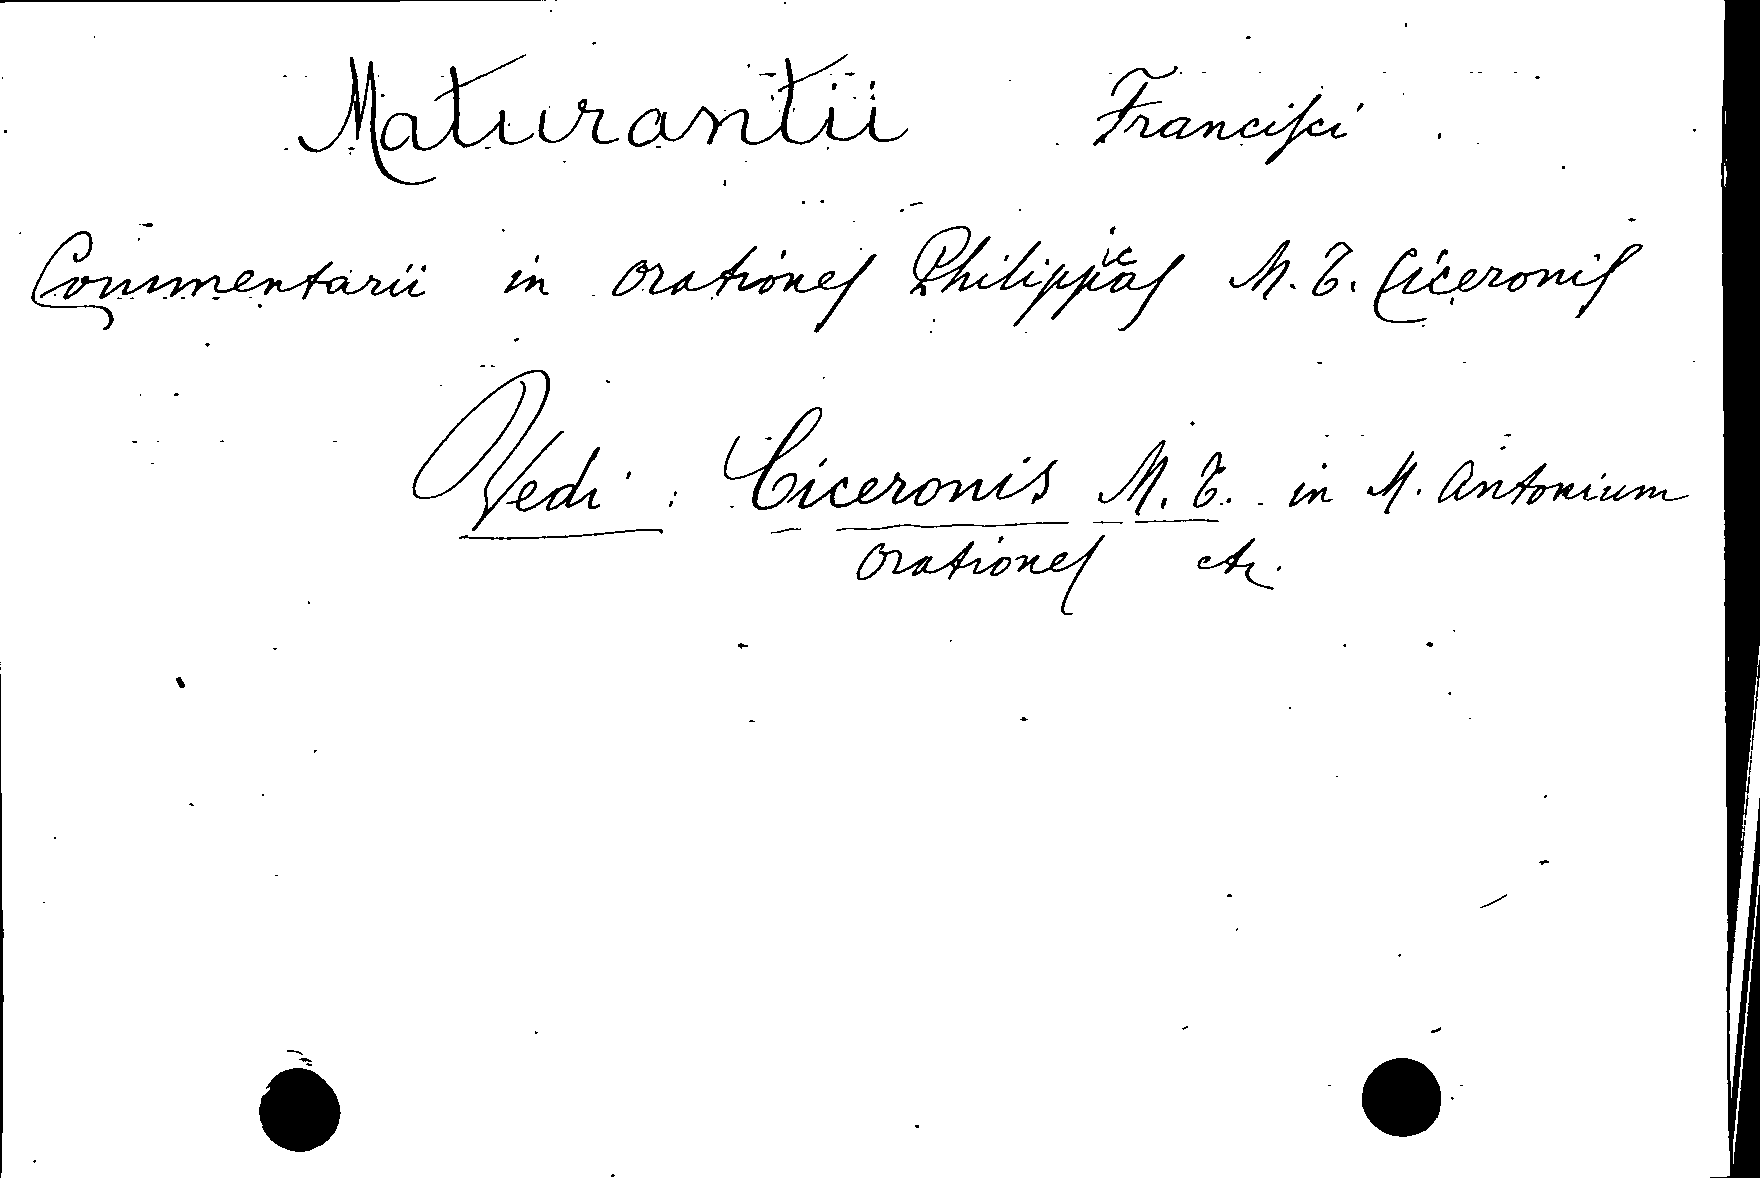 Maturantii Franciſci
Commentarii in orationeſ Philippicaſ M. T. Ciceroniſ
Vedi: Ciceronis M. T. in M. Antonium
orationeſ etc.